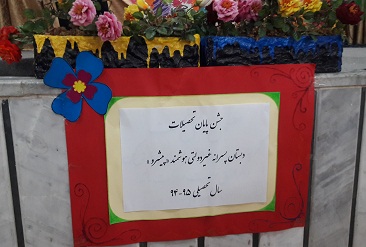 جشن پایان تحصیلات
دبستان پسرانه غیردولتی هوشمند «پیشرو»
سال تحصیلی ۹۵-۹۴